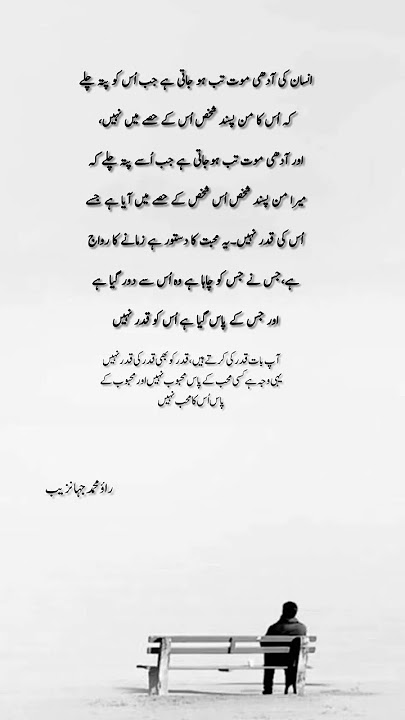 انسان کی آدھی موت تب ہو جاتی ہے جب اُس کو پتہ چلے
کہ اُس کا من پسند شخص اُس کے حصے میں نہیں،
اور آدھی موت تب ہوجاتی ہے جب اُسے پتہ چلے کہ
میرا من پسند شخص اُس شخص کے حصے میں آیا ہے جسے
اُس کی قدر نہیں۔یہ محبت کا دستور ہے زمانے کا رواج
ہے،جس نے جس کو چاہا ہے وہ اُس سے دور گیا ہے
اور جس کے پاس گیا ہے اُس کو قدر نہیں
آپ بات قدر کی کرتے ہیں،قدر کو بھی قدر کی قدر نہیں
یہی وجہ ہے کسی محب کے پاس محبوب نہیں اور محبوب کے
پاس اُس کا محب نہیں
راؤ محمد جہانزیب